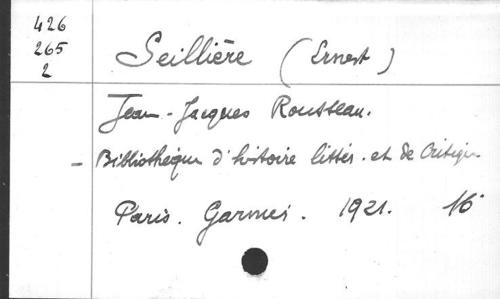 426
265
2
Seillière (Ernest)
Jean-Jacques Rousseau.
- Bibliothèque d'histoire littér. et de Critique
Paris. Garnier. 1921. 16°